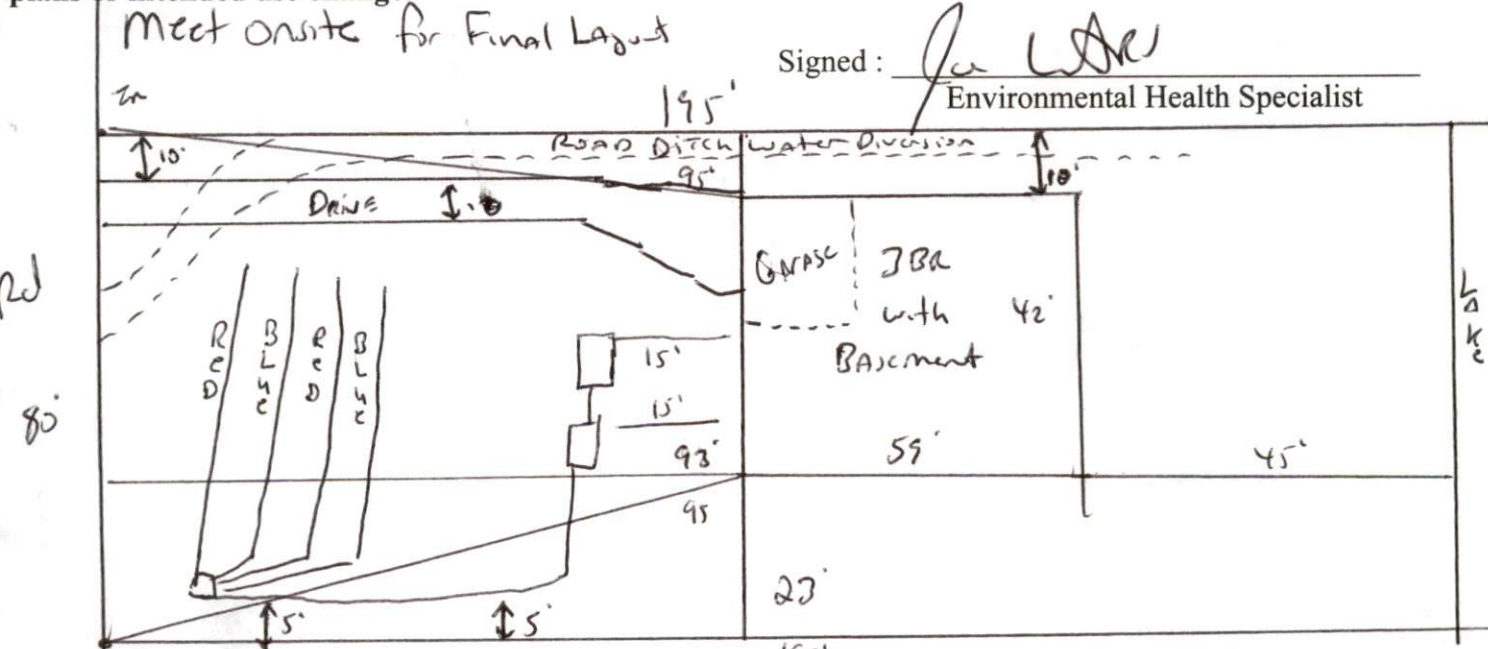 Meet onsite for Final Layout
Signed :
Environmental Health Specialist
195'
10'
ROAD DITCH WATER Diversion
95'
10'
DRIVE
Garage
3BR
with
42'
Basement
Lake
Rd
RED
BLUE
RED
BLUE
15'
15'
80'
93'
59'
45'
95
23'
5'
5'